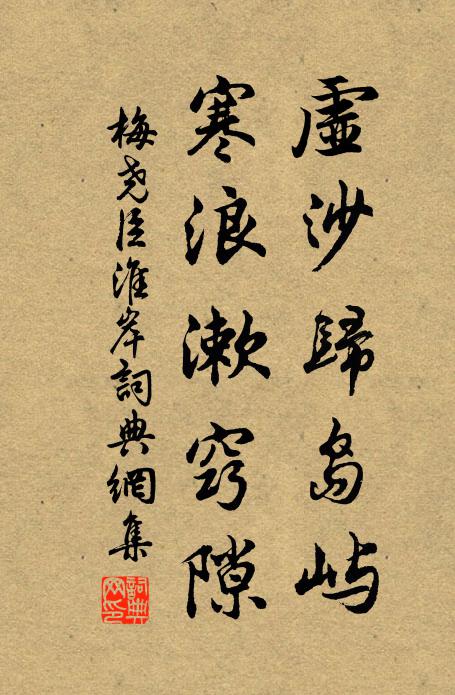 虛沙歸島嶼
寒浪漱窍隙
梅尧臣淮岸詞典網集
詞典网印